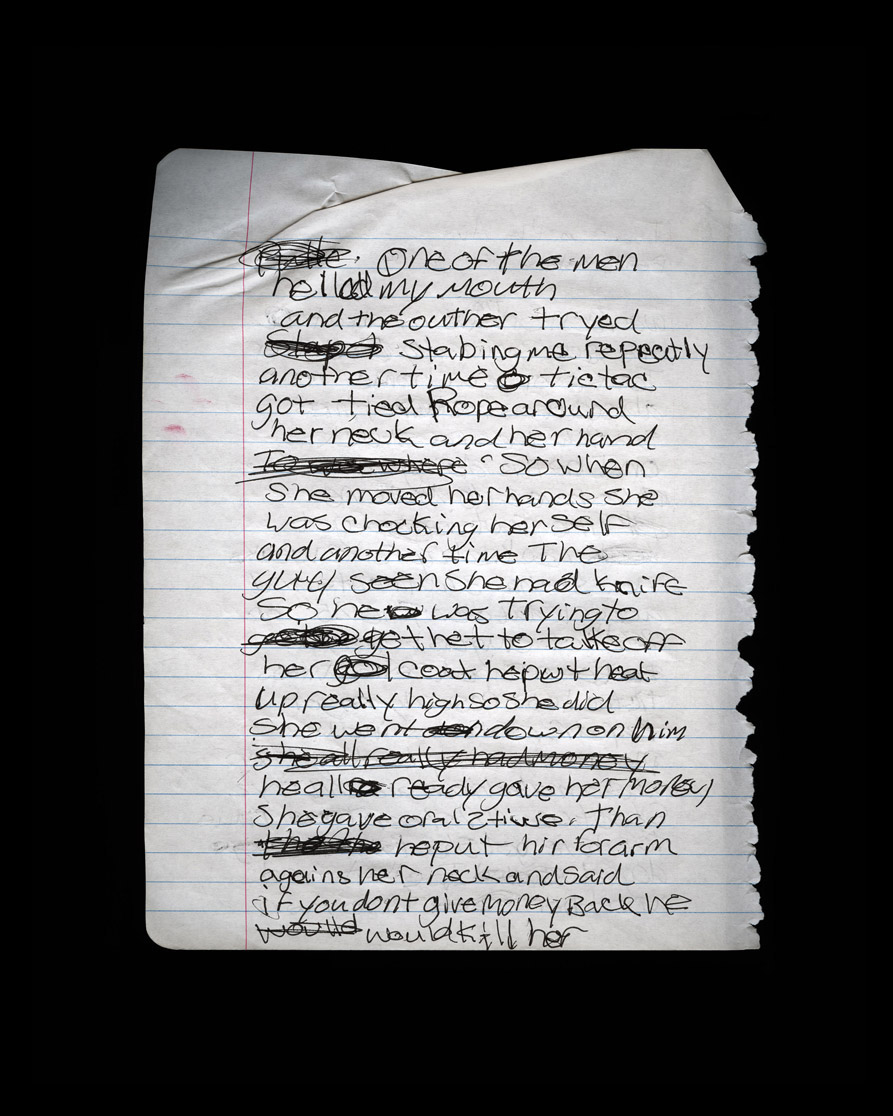 One of the men
helld my mouth
and the outher tryed
Stabing me repeatly
another time tictac
got tied Rope around
her neck and her hand
So when
She moved her hands She
was chocking her Self
and another time The
seen She had knife
So he was Trying to
get het to take off
her coat he put heat
up really high so she did
She went down on him
she all really had money
he all ready gave her money
She gave oral 2 time. Than
he put hir forarm
agains her neck and said
if you dont give money Back he
would would kill her